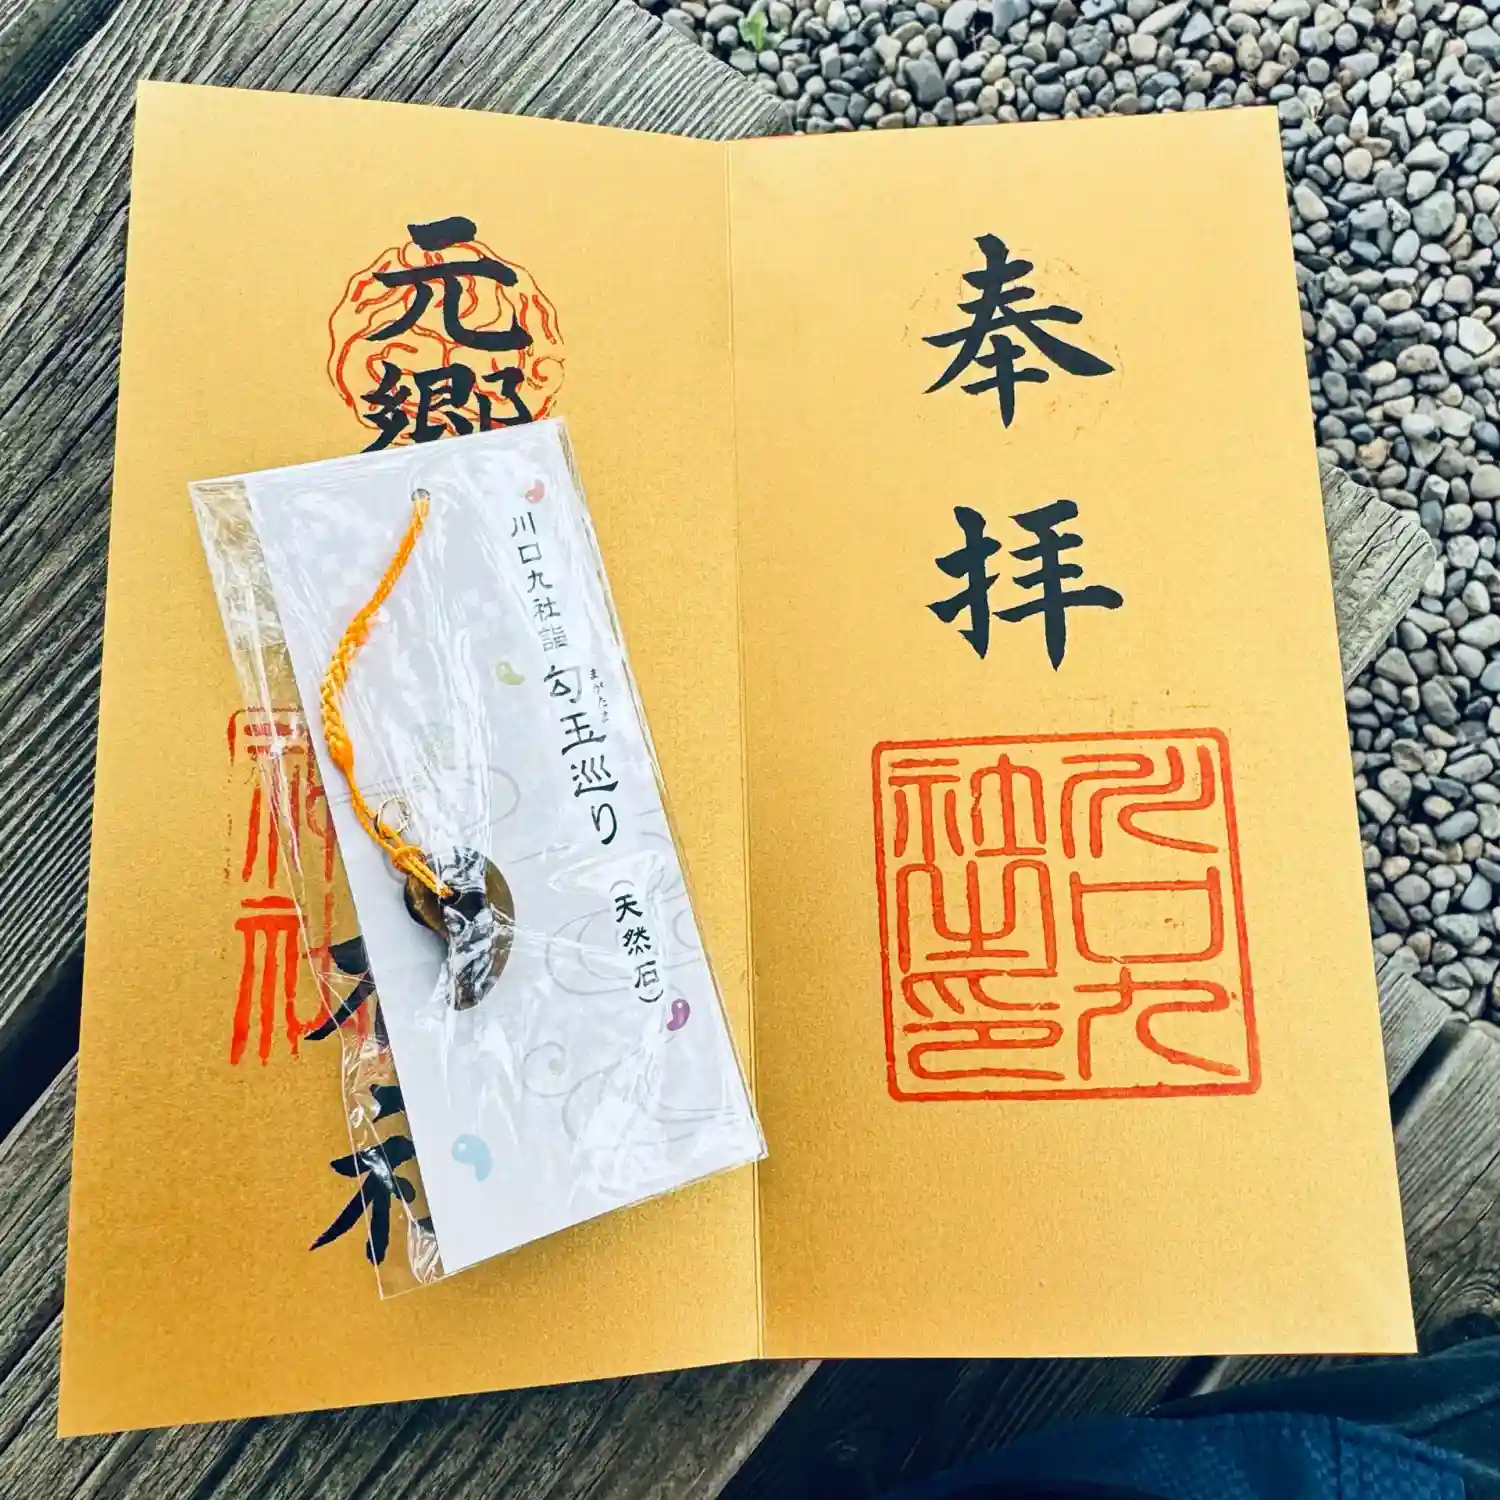 奉拝
川口九
社之印
元郷
神社
川口九社詣
勾玉巡り
まがたま
(天然石)